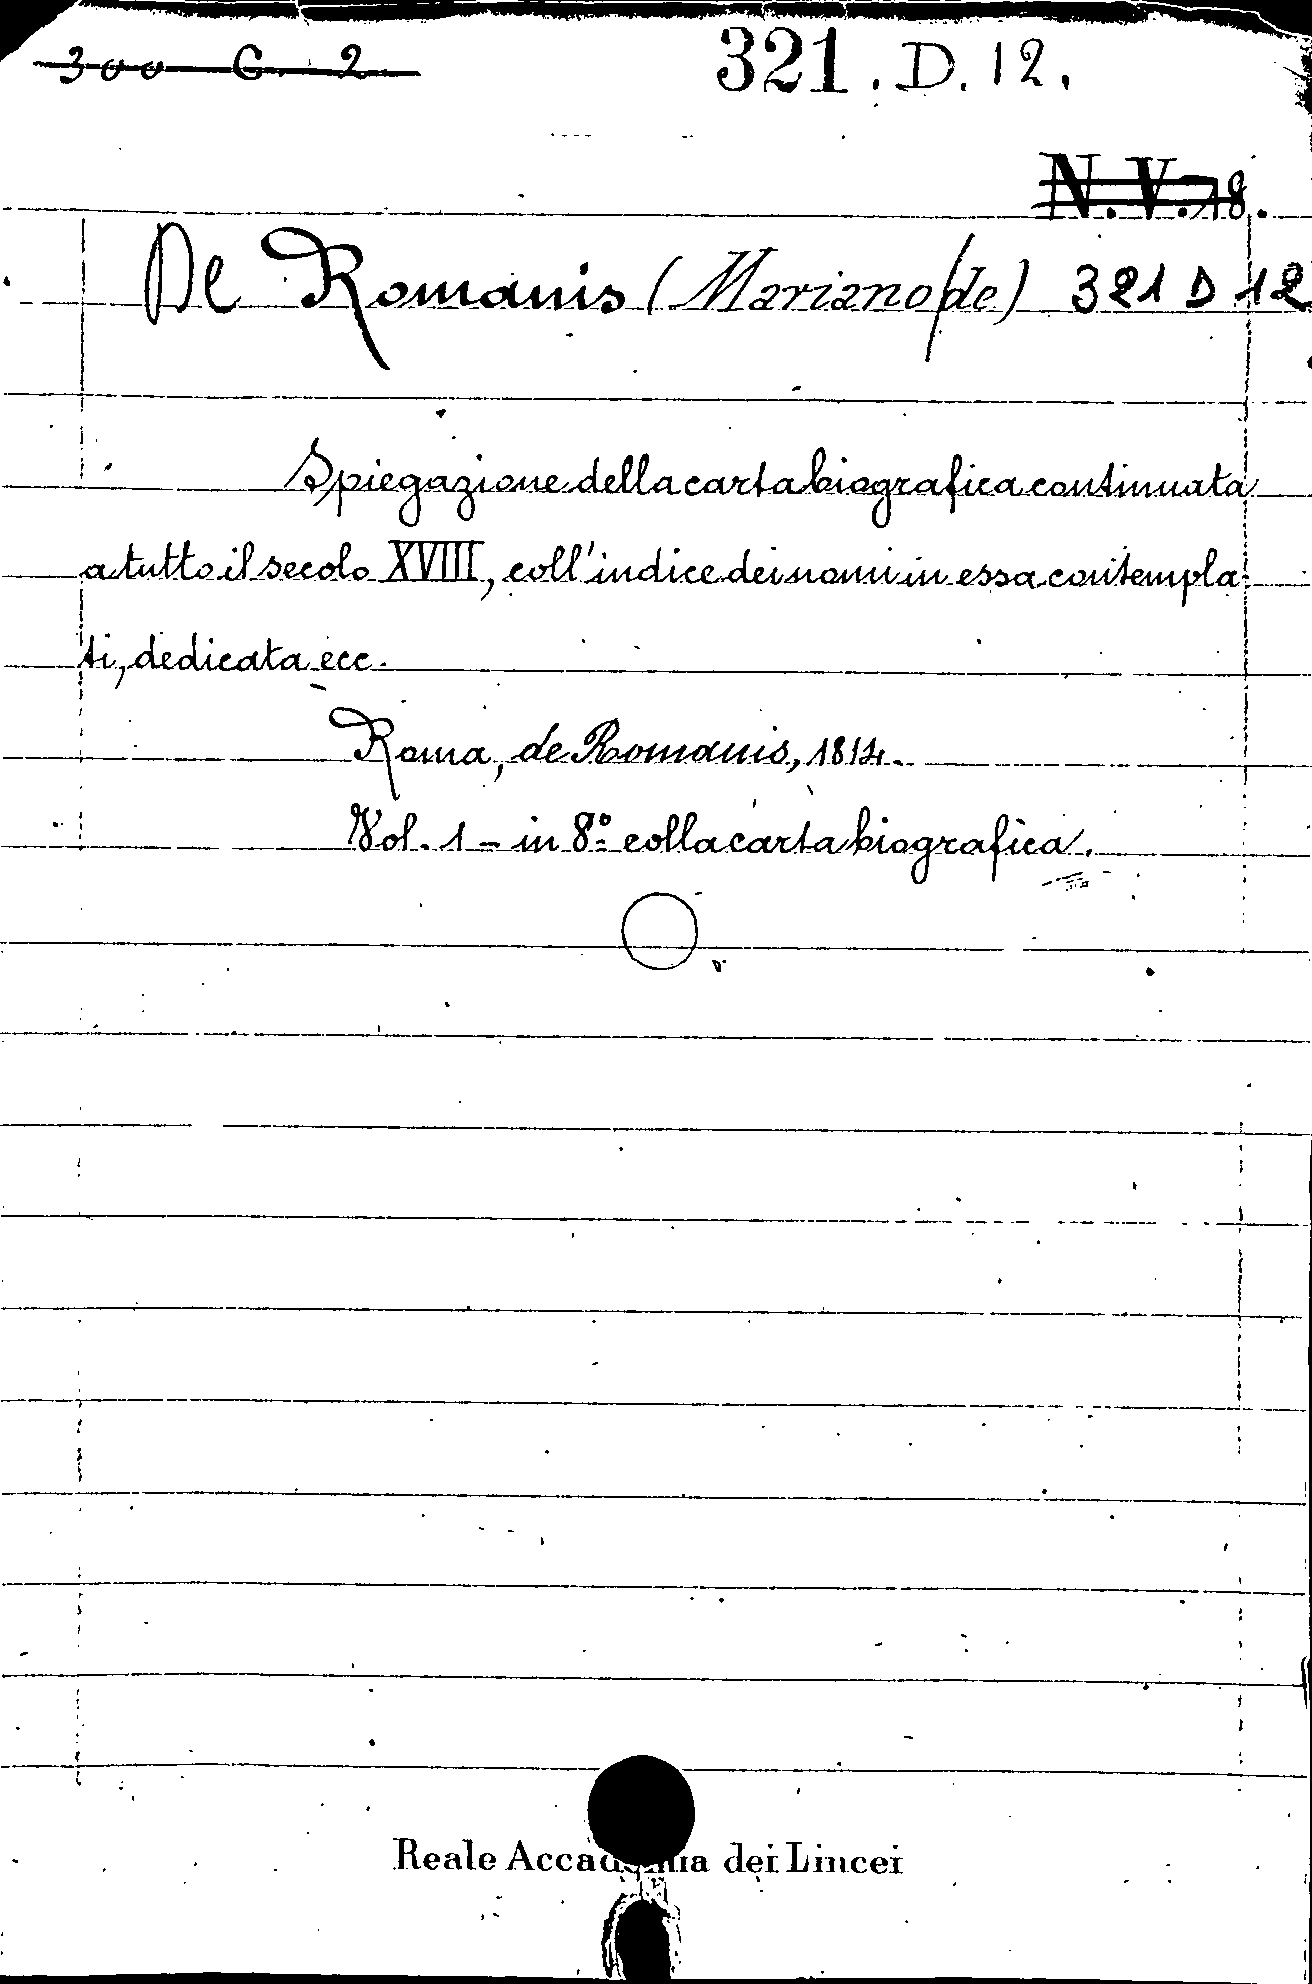 300 G. 2
321. D. 12.
N. V. 18.
De Romanis (Mariano de) 321 D 12
Spiegazione della carta biografica continuata
a tutto il secolo XVIII, coll'indice dei nomi in essa contempla-
ti, dedicata ecc.
Roma, de Romanis, 1814.
Vol. 1 - in 8.º colla carta biografica.
Reale Accademia dei Lincei